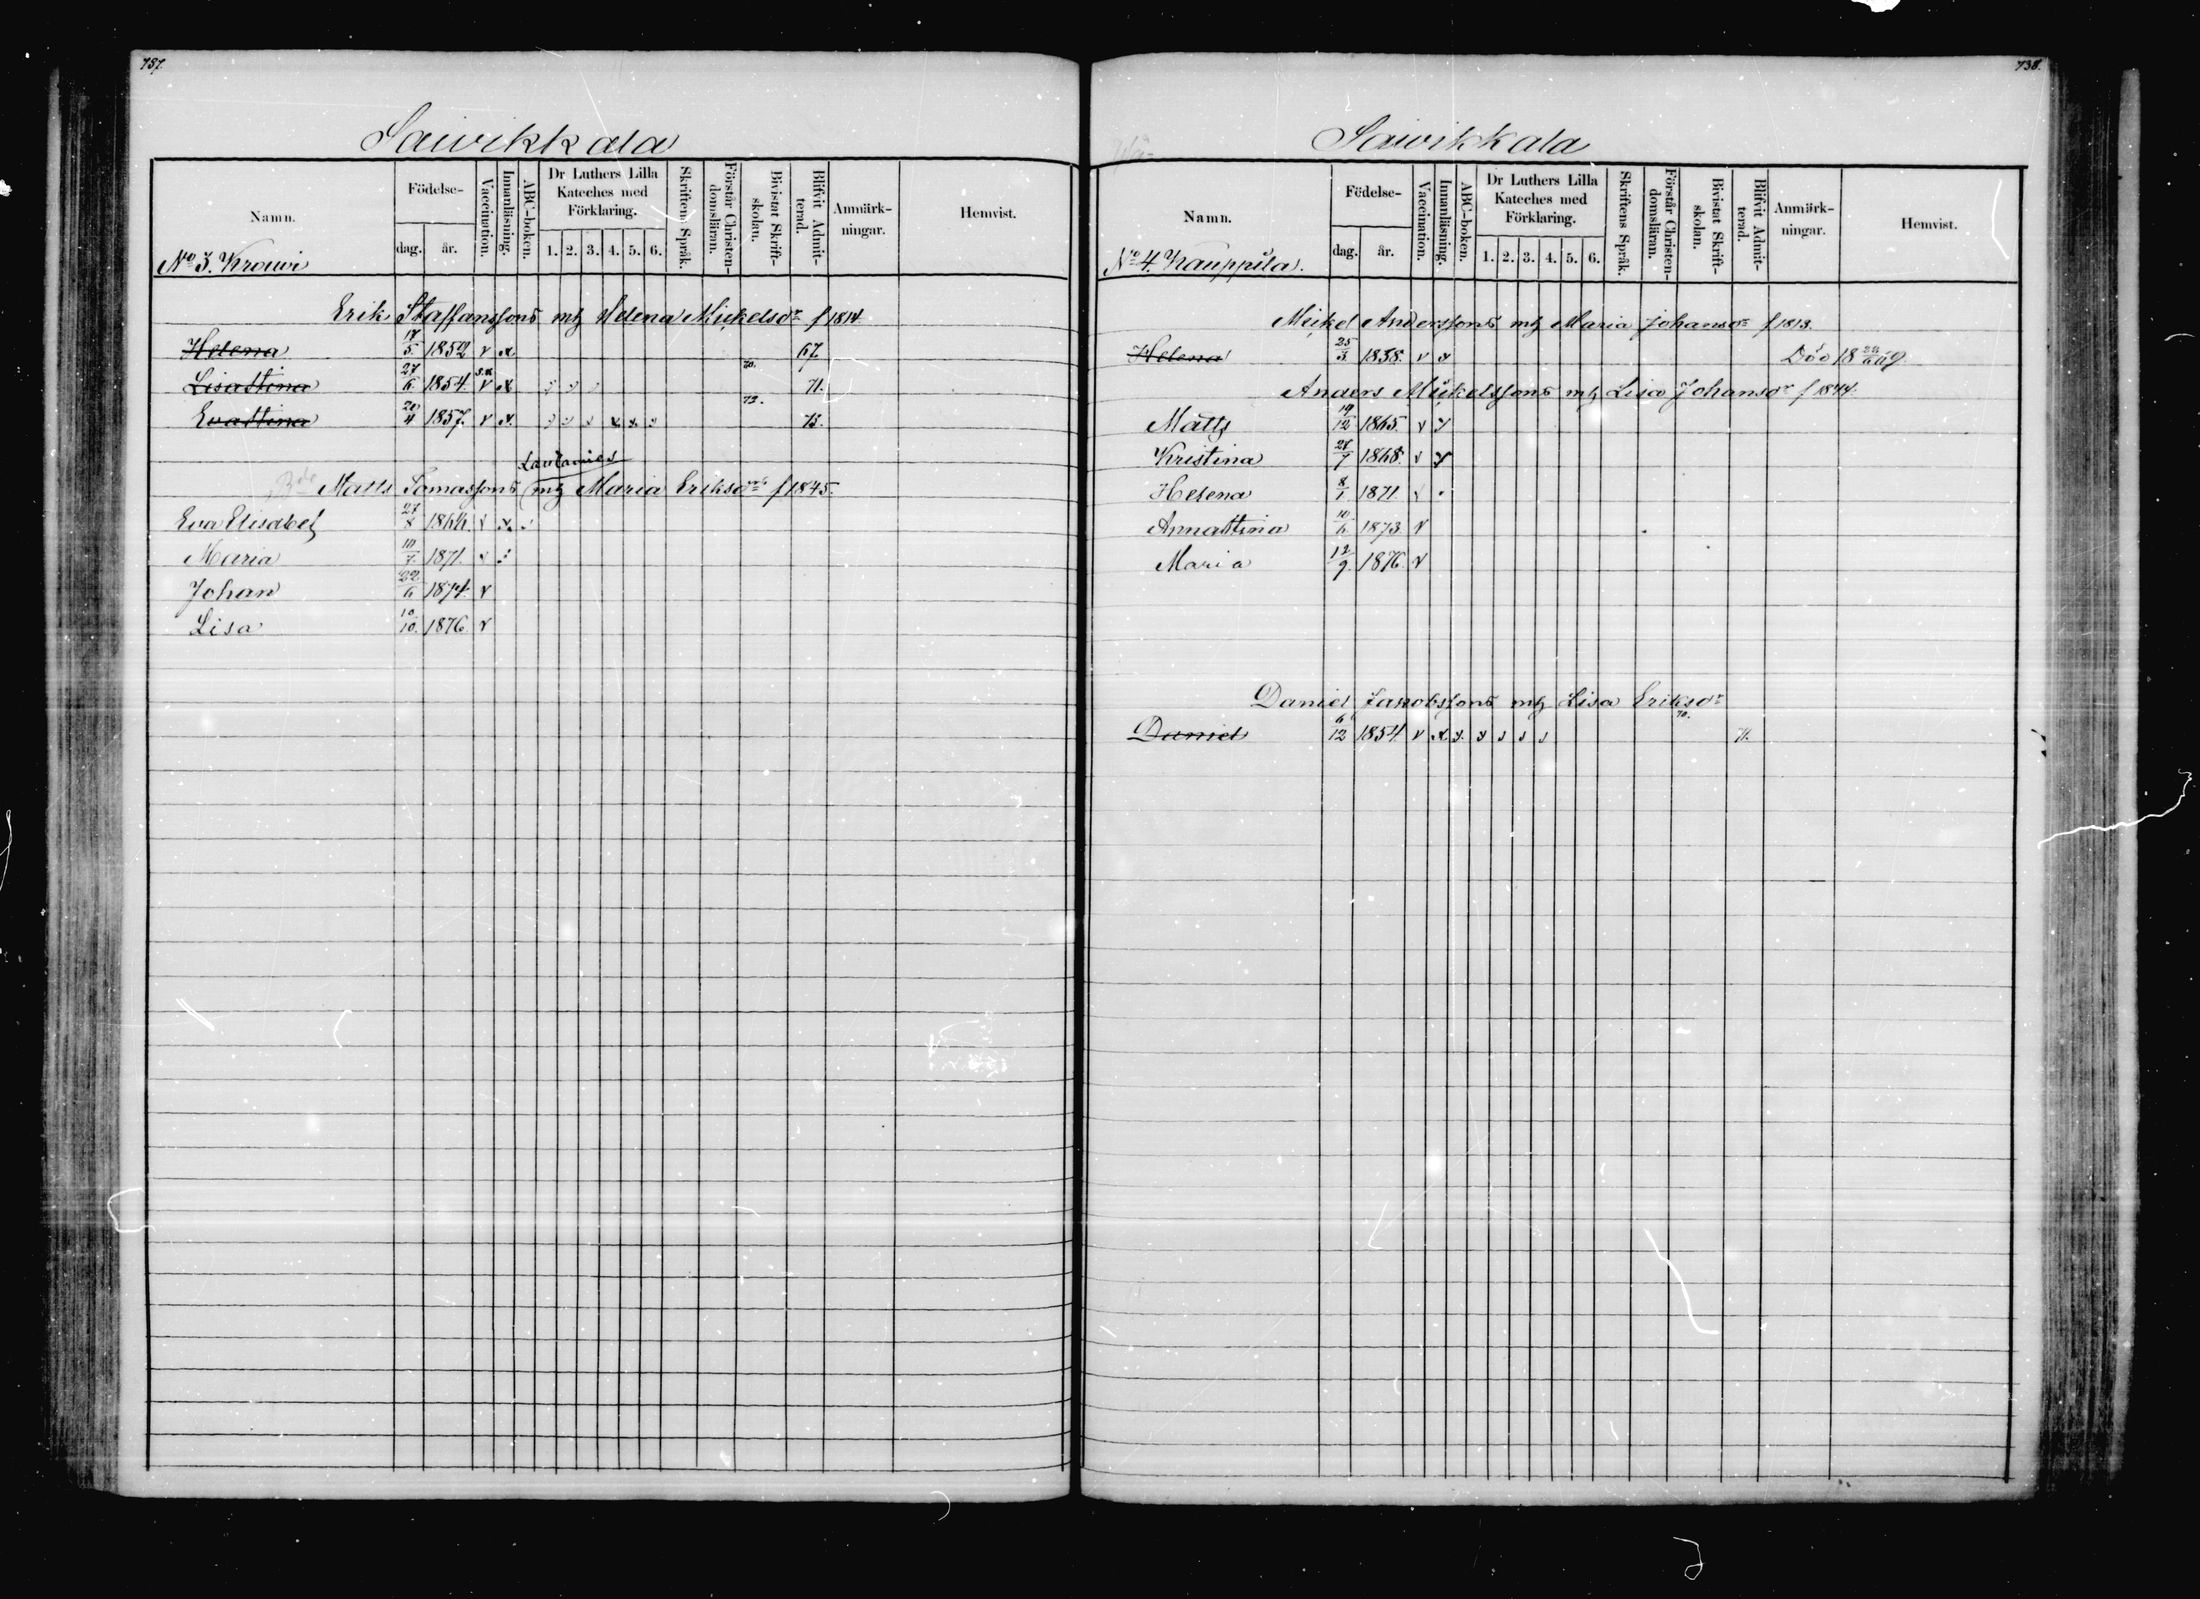 737.
Saivikkala
Namn.
Födelse-
dag.
år.
Vaccination.
Innanläsning.
ABC-boken.
Dr Luthers Lilla
Kateches med
Förklaring.
1. 2. 3. 4. 5. 6.
Skriftens Språk.
Förstår Christen-
domsläran.
Bivistat Skrift-
skolan.
Blifvit Admit-
terad.
Anmärk-
ningar.
Hemvist.
No 3. Krouvi
Erik Staffanssons m hu Helena Mickelsdr f 1814.
Helena 17/5. 1852 v x 67.
Lisastina 27/6 1854. v x 70. 71.
Evastina 20/4 1857. v x. 73. 73.
Lautamies
Matts Tomassons m hu Maria Eriksdr f 1845.
Eva Elisabet 27/8 v x
Maria 1871. v
Johan 22/6 1874. v
Lisa 10/10. 1876 v
738.
Saivikkala
Namn.
Födelse-
dag.
år.
Vaccination.
Innanläsning.
ABC-boken.
Dr Luthers Lilla
Kateches med
Förklaring.
1. 2. 3. 4. 5. 6.
Skriftens Språk.
Förstår Christen-
domsläran.
Bivistat Skrift-
skolan.
Blifvit Admit-
terad.
Anmärk-
ningar.
Hemvist.
No 4. Kauppila.
Mickel Anderssons m hu Maria Johansdr f 1813.
Helena 25/3. 1858. v Död
Anders Mickelssons m hu Lisa Johansdr f 1844.
Matts 1865. v
Kristina 1868. v
Helena 8/1. 1871. v
Annastina 10/6. 1873. v
Maria 12/9. 1876. v
Daniel Jakobssons m hu Lisa Eriksdr
Daniel 6/12 1854. v x 70. 71.